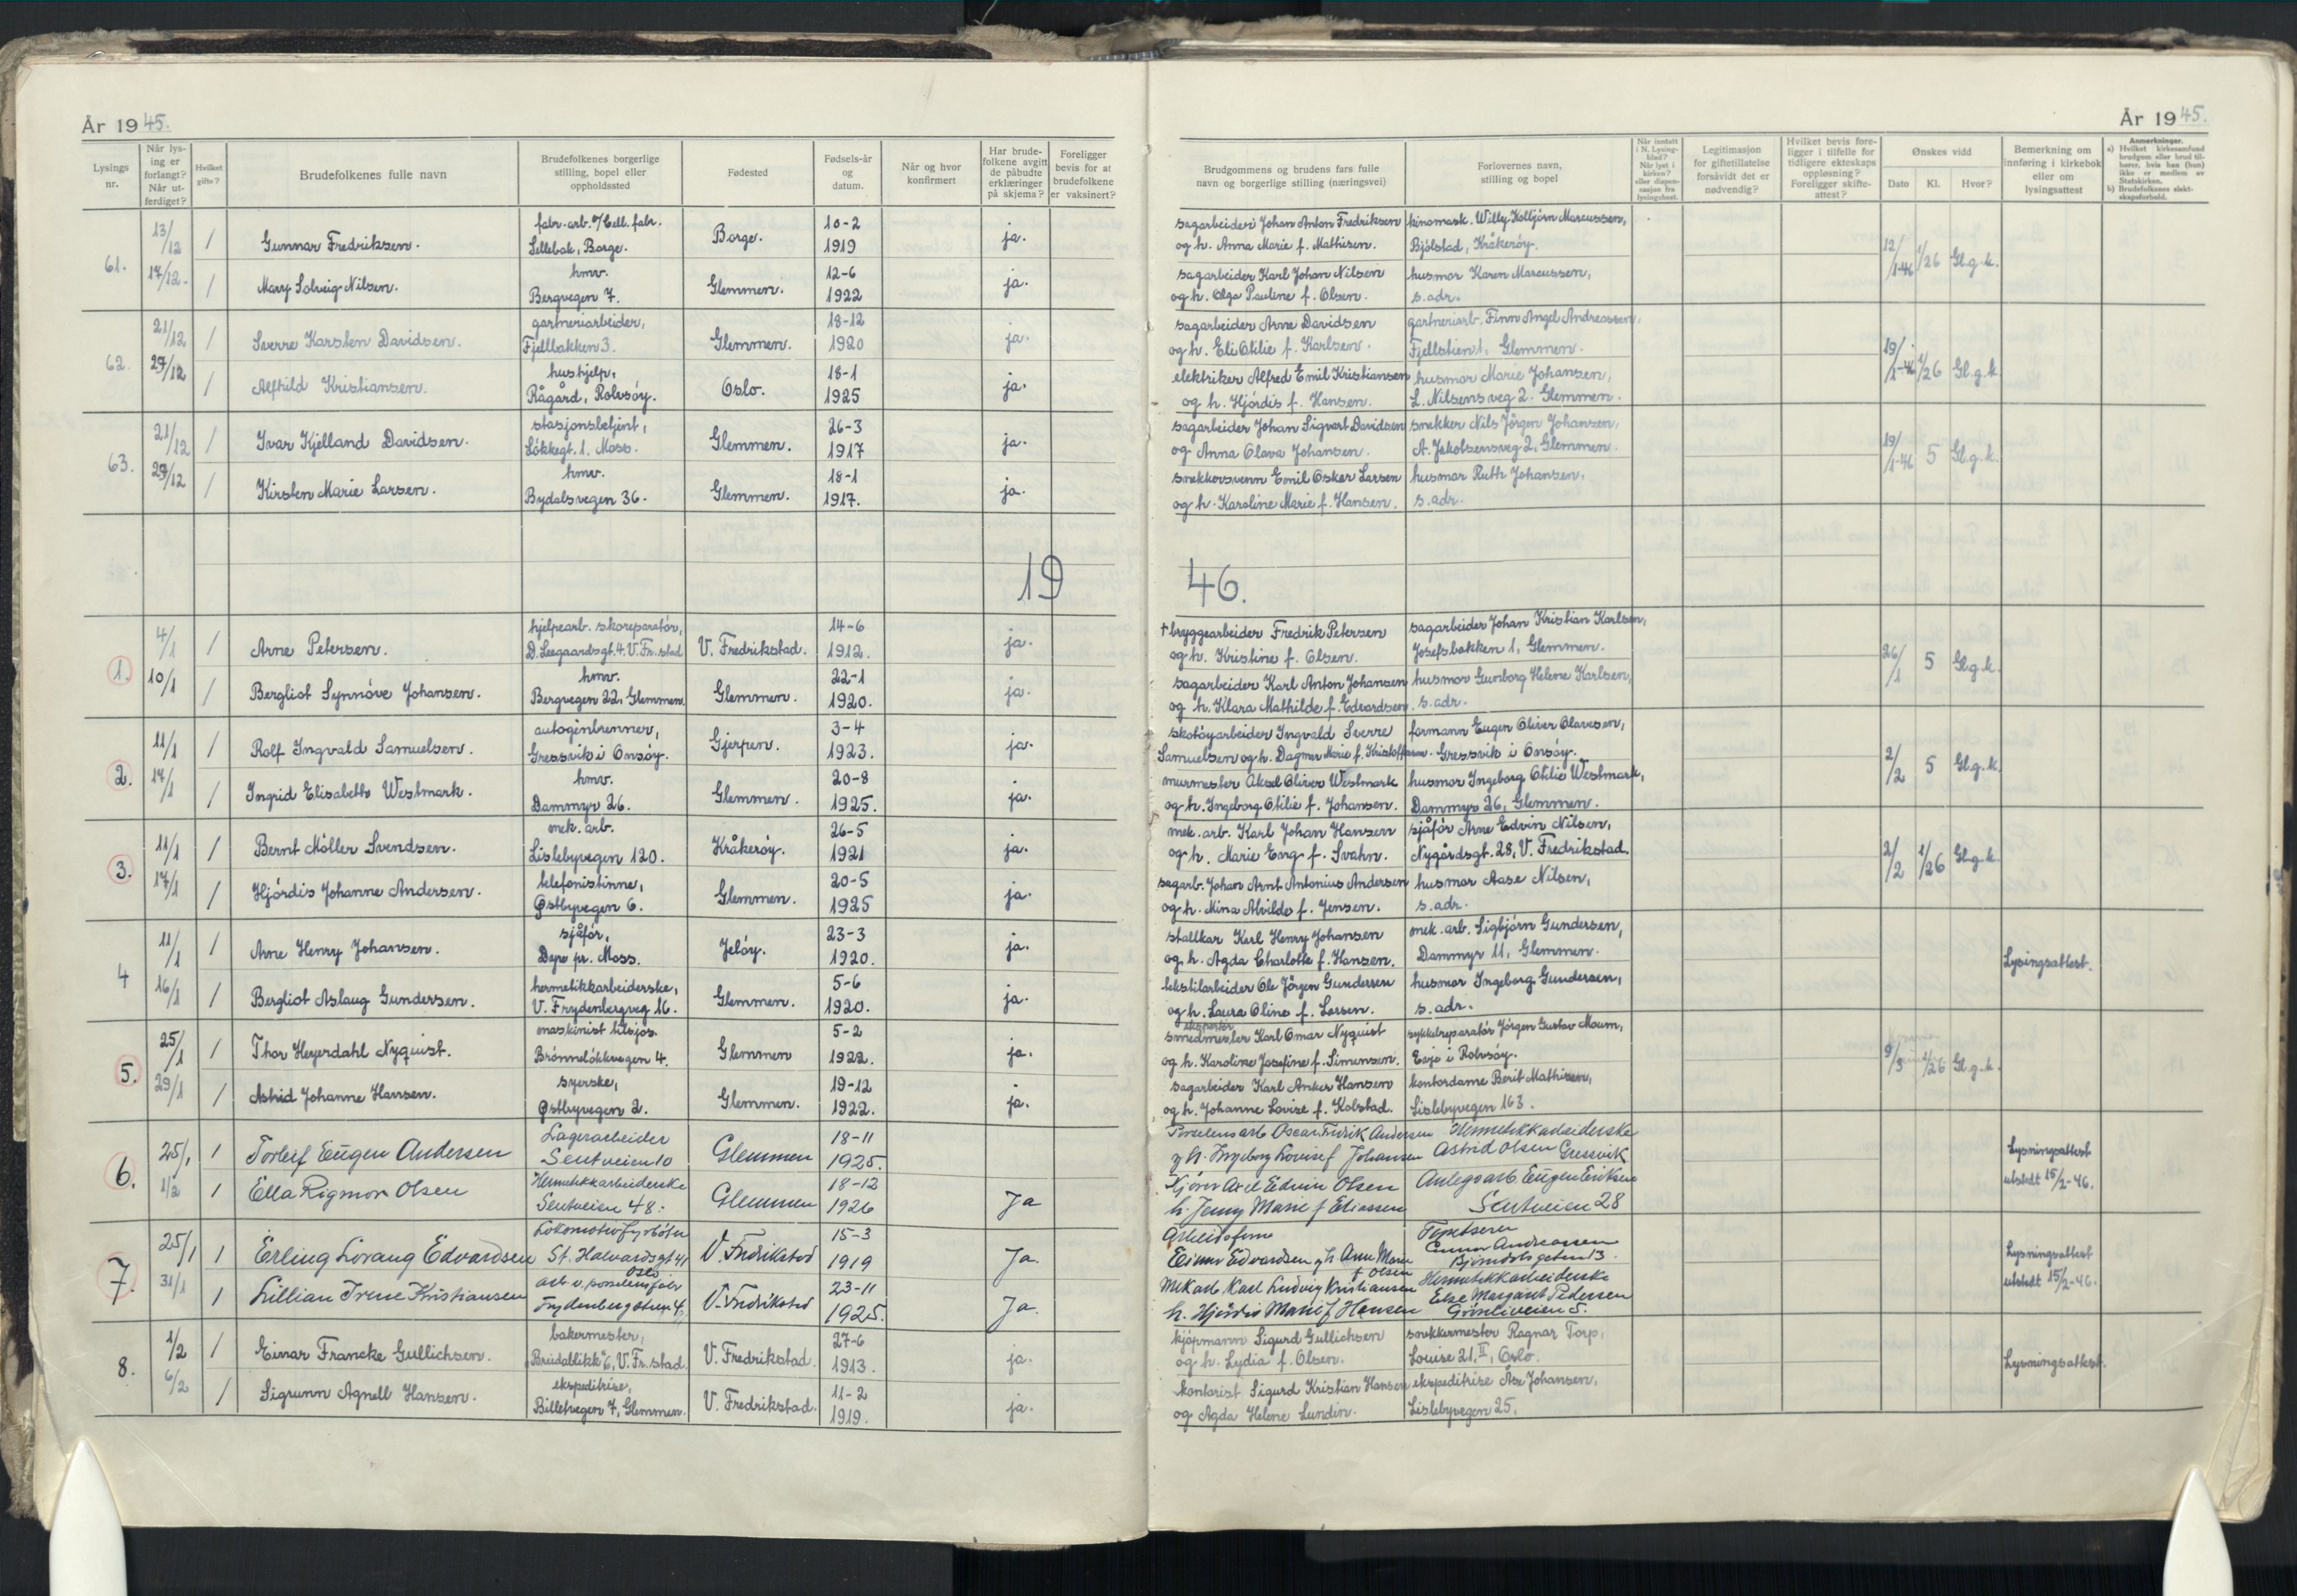 År 1945.
Lysings nr.
Når lysing er forlangt? Når utferdiget?
Hvilket gifte?
Brudefolkenes fulle navn
Brudefolkenes borgerlige stilling, bopel eller oppholdssted
Fødested
Fødsels-år og datum.
Når og hvor konfirmert
Har brudefolkene avgitt de påbudte erklæringer på skjema?
Foreligger bevis for at brudefolkene er vaksinert?
61.
13/12
1
Gunnar Fredriksen.
fabr.-arb. v/Cell. fabr.
Sellebak, Borge.
Borge.
10-2
1919
ja.
17/12.
1
Mary Solveig Nilsen.
hmv.
Bergvegen 7.
Glemmen.
12-6
1922
ja.
62.
21/12
1
Sverre Karsten Davidsen.
gartneriarbeider,
Fjellbakken 3.
Glemmen.
18-12
1920
ja.
27/12
1
Alfhild Kristiansen.
hushjelp,
Rågård, Rolvsøy.
Oslo.
18-1
1925
ja.
63.
21/12
1
Ivar Kjelland Davidsen.
stasjonsbetjent,
Løkkegt. 1. Moss.
Glemmen.
26-3
1917
ja.
27/12
1
Kirsten Marie Larsen.
hmv.
Bydalsvegen 36.
Glemmen.
18-1
1917.
ja.
19
1.
4/1
1
Arne Petersen.
hjelpearb. skoreparatør,
D. Leegaardsgt. 4. V. Fr.stad
V. Fredrikstad.
14-6
1912.
ja.
10/1
1
Bergliot Synnøve Johansen.
hmv.
Bergvegen 22, Glemmen.
Glemmen.
22-1
1920.
ja.
2.
11/1
1
Rolf Ingvald Samuelsen.
autogénbrenner,
Gressvik i Onsøy.
Gjerpen.
3-4
1923.
ja.
17/1
1
Ingrid Elisabeth Westmark.
hmv.
Dammyr 26.
Glemmen.
20-8
1925.
ja.
3.
11/1
1
Bernt Möller Svendsen.
mek. arb.
Lislebyvegen 120.
Kråkerøy.
26-5
1921
ja.
17/1
1
Hjørdis Johanne Andersen.
telefonistinne,
Østbyvegen 6.
Glemmen.
20-5
1925
ja.
4
11/1
1
Arne Henry Johansen.
sjåfør,
Dyre pr. Moss.
Jeløy.
23-3
1920.
ja.
16/1
1
Bergliot Aslaug Gundersen.
hermetikkarbeiderske,
V. Frydenbergveg 16.
Glemmen.
5-6
1920.
ja.
5.
25/1
1
Thor Heyerdahl Nyquist.
maskinist tilsjøs.
Brønneløkkvegen 4.
Glemmen
5-2
1922.
ja.
29/1
1
Astrid Johanne Hansen.
syerske,
Østbyvegen 2.
Glemmen.
19-12
1922.
ja.
6.
25/1
1
Torleif Eugen Andersen
Lagerarbeider
Seutveien 10
Glemmen
18-11
1925.
1/2
1
Ella Rigmor Olsen
Hermetikkarbeiderske
Seutveien 48.
Glemmen
18-12
1926
Ja
7.
25/1
1
Erling Lorang Edvardsen
Lokomotivfyrbøter
St. Halvardsgt 41
Oslo
V. Fredrikstad
15-3
1919
Ja.
31/1
1
Lillian Irene Kristiansen
arb. v. porselensfabr
V. Fredrikstad
23-11
1925.
Ja.
8.
1/2
1
Einar Francke Gullichsen.
bakermester,
"Breidablikk" 6, V. Fr.stad.
V. Fredrikstad.
27-6
1913.
ja.
6/2
1
Sigrunn Agnell Hansen.
ekspeditrise,
Billetvegen 7, Glemmen.
V. Fredrikstad.
11-2
1919.
ja.
År 1945.
Brudgommens og brudens fars fulle navn og borgerlige stilling (næringsvei)
Forlovernes navn, stilling og bopel
Når inntatt i N. Lysingblad? Når lyst i kirken? eller dispensasjon fra lysingsbest.
Legitimasjon for giftetillatelse forsåvidt det er nødvendig?
Hvilket bevis foreligger i tilfelle for tidligere ekteskaps oppløsning? Foreligger skifteattest?
Ønskes vidd
Dato
Kl.
Hvor?
Bemerkning om innføring i kirkebok eller om lysingsattest
Anmerkninger.
a) Hvilket kirkesamfund brudgom eller brud tilhører, hvis han (hun) ikke er medlem av Statskirken.
b) Brudefolkenes slektskapsforhold.
sagarbeider Johan Anton Fredriksen
og h. Anna Marie f. Mathisen.
kinomask. Willy Kolbjørn Marcussen,
Bjølstad, Kråkerøy.
12/1-46
1/2 6
Gl.g.k.
sagarbeider Karl Johan Nilsen
og h. Olga Pauline f. Olsen.
husmor Karen Marcussen,
s. adr.
sagarbeider Arne Davidsen
og h. Eli Otilie f. Karlsen.
gartneriarb. Finn Angel Andreassen,
Fjellstien 1, Glemmen.
19/1-46
1/2 6
Gl.g.k
elektriker Alfred Emil Kristiansen
og h. Hjørdis f. Hansen.
husmor Marie Johansen,
L. Nilsens veg 2. Glemmen.
sagarbeider Johan Sigvart Davidsen
og Anna Olava Johansen.
snekker Nils Jörgen Johansen,
A. Jakobsensveg 2, Glemmen.
19/1-46
5
Gl.g.k.
snekkersvenn Emil Oskar Larsen
og h. Karoline Marie f. Hansen.
husmor Ruth Johansen,
s. adr.
46.
† bryggearbeider Fredrik Petersen
og h. Kristine f. Olsen.
sagarbeider Johan Kristian Karlsen,
Josefsbakken 1, Glemmen.
26/1
5
Gl.g.k.
sagarbeider Karl Anton Johansen
og h. Klara Mathilde f. Edvardsen.
husmor Gunborg Helene Karlsen,
s. adr.
skotøyarbeider Ingvald Sverre
Samuelsen og h. Dagmar Marie f. Kristoffersen.
formann Eugen Oliver Olavesen,
Gressvik i Onsøy.
2/2
5
Gl.g.k.
murmester Aksel Oliver Westmark
og h. Ingeborg Otilie f. Johansen.
husmor Ingeborg Otilie Westmark,
Dammyr 26, Glemmen.
mek. arb. Karl Johan Hansen
og h. Marie Eng f. Svahn.
sjåfør Arne Edvin Nilsen,
Nygårdsgt. 28, V. Fredrikstad.
2/2
1/2 6
Gl.g.k.
sagarb. Johan Arnt Antonius Andersen
og h. Mina Alvilde f. Jensen.
husmor Aase Nilsen,
s. adr.
stallkar Karl Henry Johansen
og h. Agda Charlotte f. Hansen.
mek. arb. Sigbjörn Gundersen,
Dammyr 11, Glemmen.
Lysingsattest.
tekstilarbeider Ole Jörgen Gundersen
og h. Laura Oline f. Larsen.
husmor Ingeborg Gundersen,
s. adr.
smedmester Karl Omar Nyquist
og h. Karoline Josefine f. Simensen.
sykkelreparatør Jörgen Gustav Moum,
Evje i Rolvsøy.
9/3
1/2 6
Gl.g.k.
sagarbeider Karl Anker Hansen
og h. Johanne Lovise f. Kolstad.
kontordame Berit Mathisen,
Lislebyvegen 163.
Porselensarb Oscar Fredrik Andersen
og h. Ingeborg Lovise f Johansen
Hermetikkarbeiderske
Astrid Olsen Gressvik
Lysningsattest
utstedt 15/2-46.
Axel Edvin Olsen
h. Jenny Marie f Eliassen
Anlegsarb Eugen Eriksen
Seutveien 28
Arbeidsform
Einar Edvardsen og h. Anna Marie
f Olsen
Tapetserer
Andreassen
Lysningsattest
utstedt 15/2-46.
Mek arb. Karl Ludvig Kristiansen
h. Hjørdis Marie f Hansen
Hermetikkarbeiderske
Else Margaret Pedersen
Grønliveien 5.
kjøpmann Sigurd Gullichsen
og h. Lydia f. Olsen.
snekkermester Ragnar Torp,
Louise 21, II, Oslo.
Lysningsattest.
kontorist Sigurd Kristian Hansen
og Agda Helene Lundin.
ekspeditrise Åse Johansen,
Lislebyvegen 25.